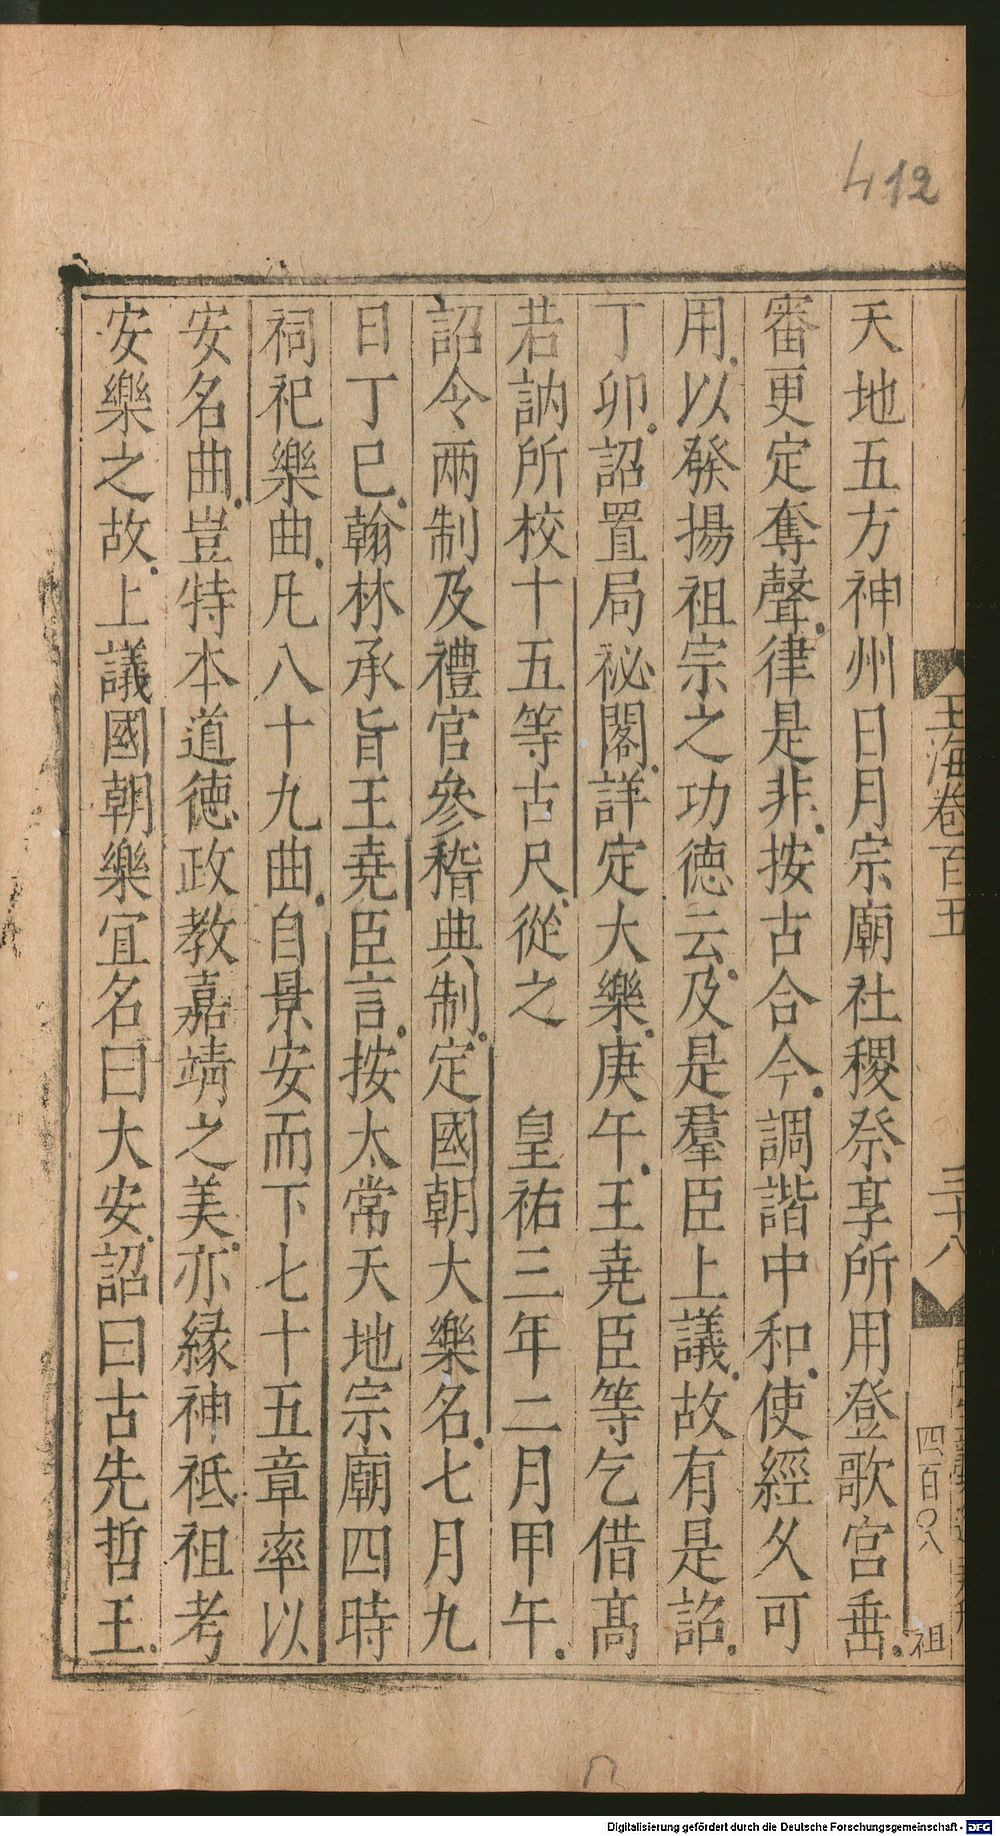 412
天地五方神州日月宗廟社稷祭享所用登歌宮垂
審更定奪聲律是非按古合今調諧中和使經久可
用以發揚祖宗之功德云及是羣臣上議故有是詔
丁卯詔置局祕閣詳定大樂庚午王堯臣等乞借高
若訥所校十五等古尺從之　皇祐三年二月甲午
詔令兩制及禮官參稽典制定國朝大樂名七月九
日丁巳翰林承旨王堯臣言按太常天地宗廟四時
祠祀樂曲凡八十九曲自景安而下七十五章率以
安名曲豈特本道德政教嘉靖之美亦緣神祗祖考
安樂之故上議國朝樂宜名曰大安詔曰古先哲王
玉海卷百五
三十八
四百〇八
祖
Digitalisierung gefördert durch die Deutsche Forschungsgemeinschaft - DFG